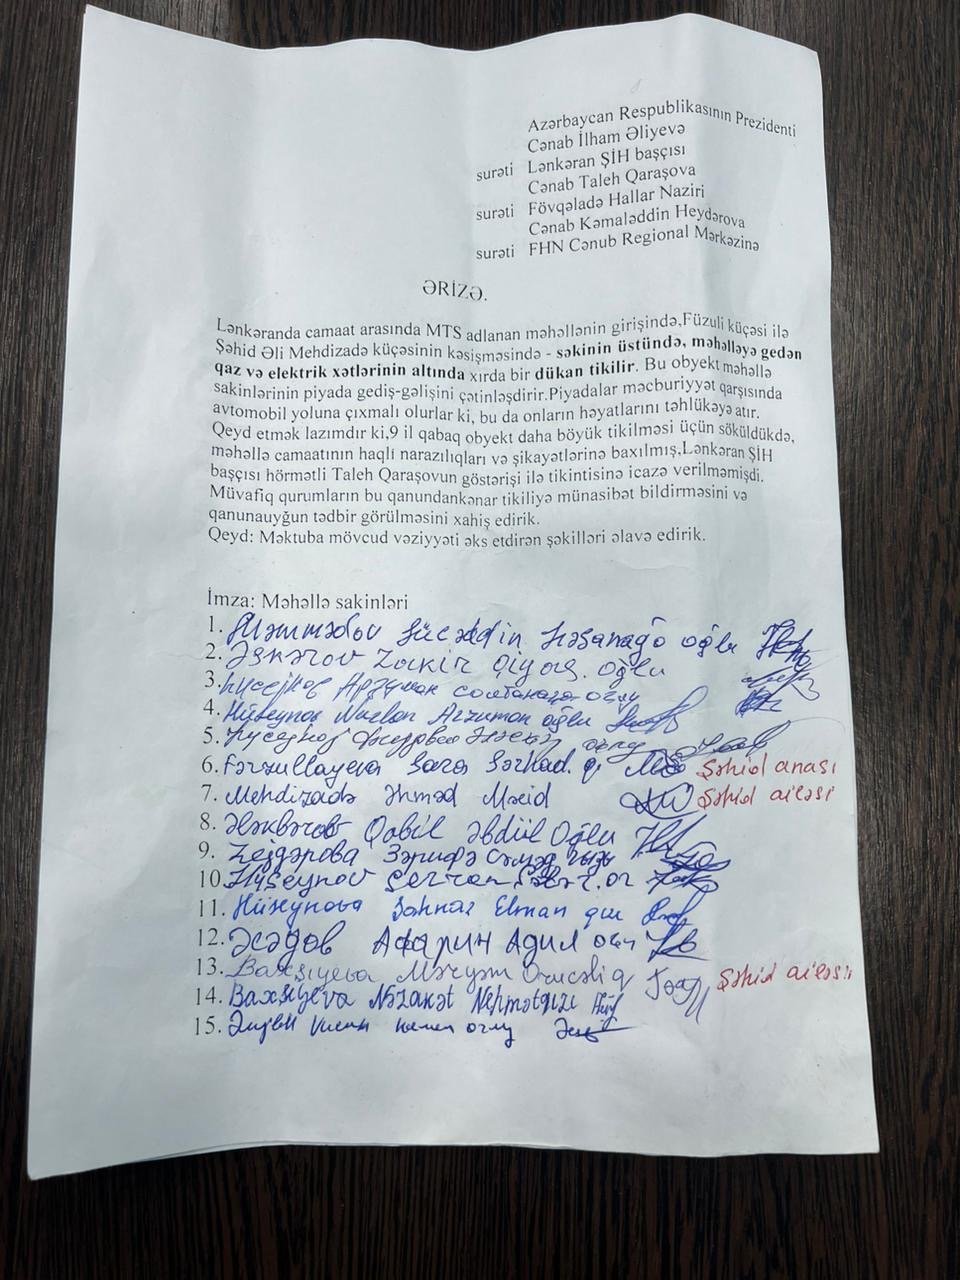 Azərbaycan Respublikasının Prezidenti
Cənab İlham Əliyevə
surəti Lənkəran ŞİH başçısı
Cənab Taleh Qaraşova
surəti Fövqəladə Hallar Naziri
Cənab Kəmaləddin Heydərova
surəti FHN Cənub Regional Mərkəzinə
ƏRİZƏ.
Lənkəranda camaat arasında MTS adlanan məhəllənin girişində,Füzuli küçəsi ilə
Şəhid Əli Mehdizadə küçəsinin kəsişməsində - səkinin üstündə, məhəlləyə gedən
qaz və elektrik xətlərinin altında xırda bir dükan tikilir. Bu obyekt məhəllə
sakinlərinin piyada gediş-gəlişini çətinləşdirir.Piyadalar məcburiyyət qarşısında
avtomobil yoluna çıxmalı olurlar ki, bu da onların həyatlarını təhlükəyə atır.
Qeyd etmək lazımdır ki,9 il qabaq obyekt daha böyük tikilməsi üçün söküldükdə,
məhəllə camaatının haqli narazılıqları və şikayətlərinə baxılmış,Lənkəran ŞİH
başçısı hörmətli Taleh Qaraşovun göstərişi ilə tikintisinə icazə verilməmişdi.
Müvafiq qurumların bu qanundankənar tikiliyə münasibət bildirməsini və
qanunauyğun tədbir görülməsini xahiş edirik.
Qeyd: Məktuba mövcud vəziyyəti əks etdirən şəkilləri əlavə edirik.
İmza: Məhəllə sakinləri
1. Məmmədov Şücəddin Həsanağa oğlu
2. Əsgərov Zakir Qiyas oğlu
3. Арзуман
4. Hüseynov Arzuman oğlu
5.
6. Fərzullayeva Sara Sərhad. q. Şəhid anası
7. Mehdizadə Əhməd Məcid Şəhid ailəsi
8. Ələkbərov Qabil Əbdül Oğlu
9. Зәрифә
10. Hüseynov
11. Hüseynova Şahnaz Elman qızı
12. Әсәдов Адил
13. Baxşıyeva Məryəm Şəhid ailəsi
14. Baxşıyeva Nəzakət Nehmətqızı
15.